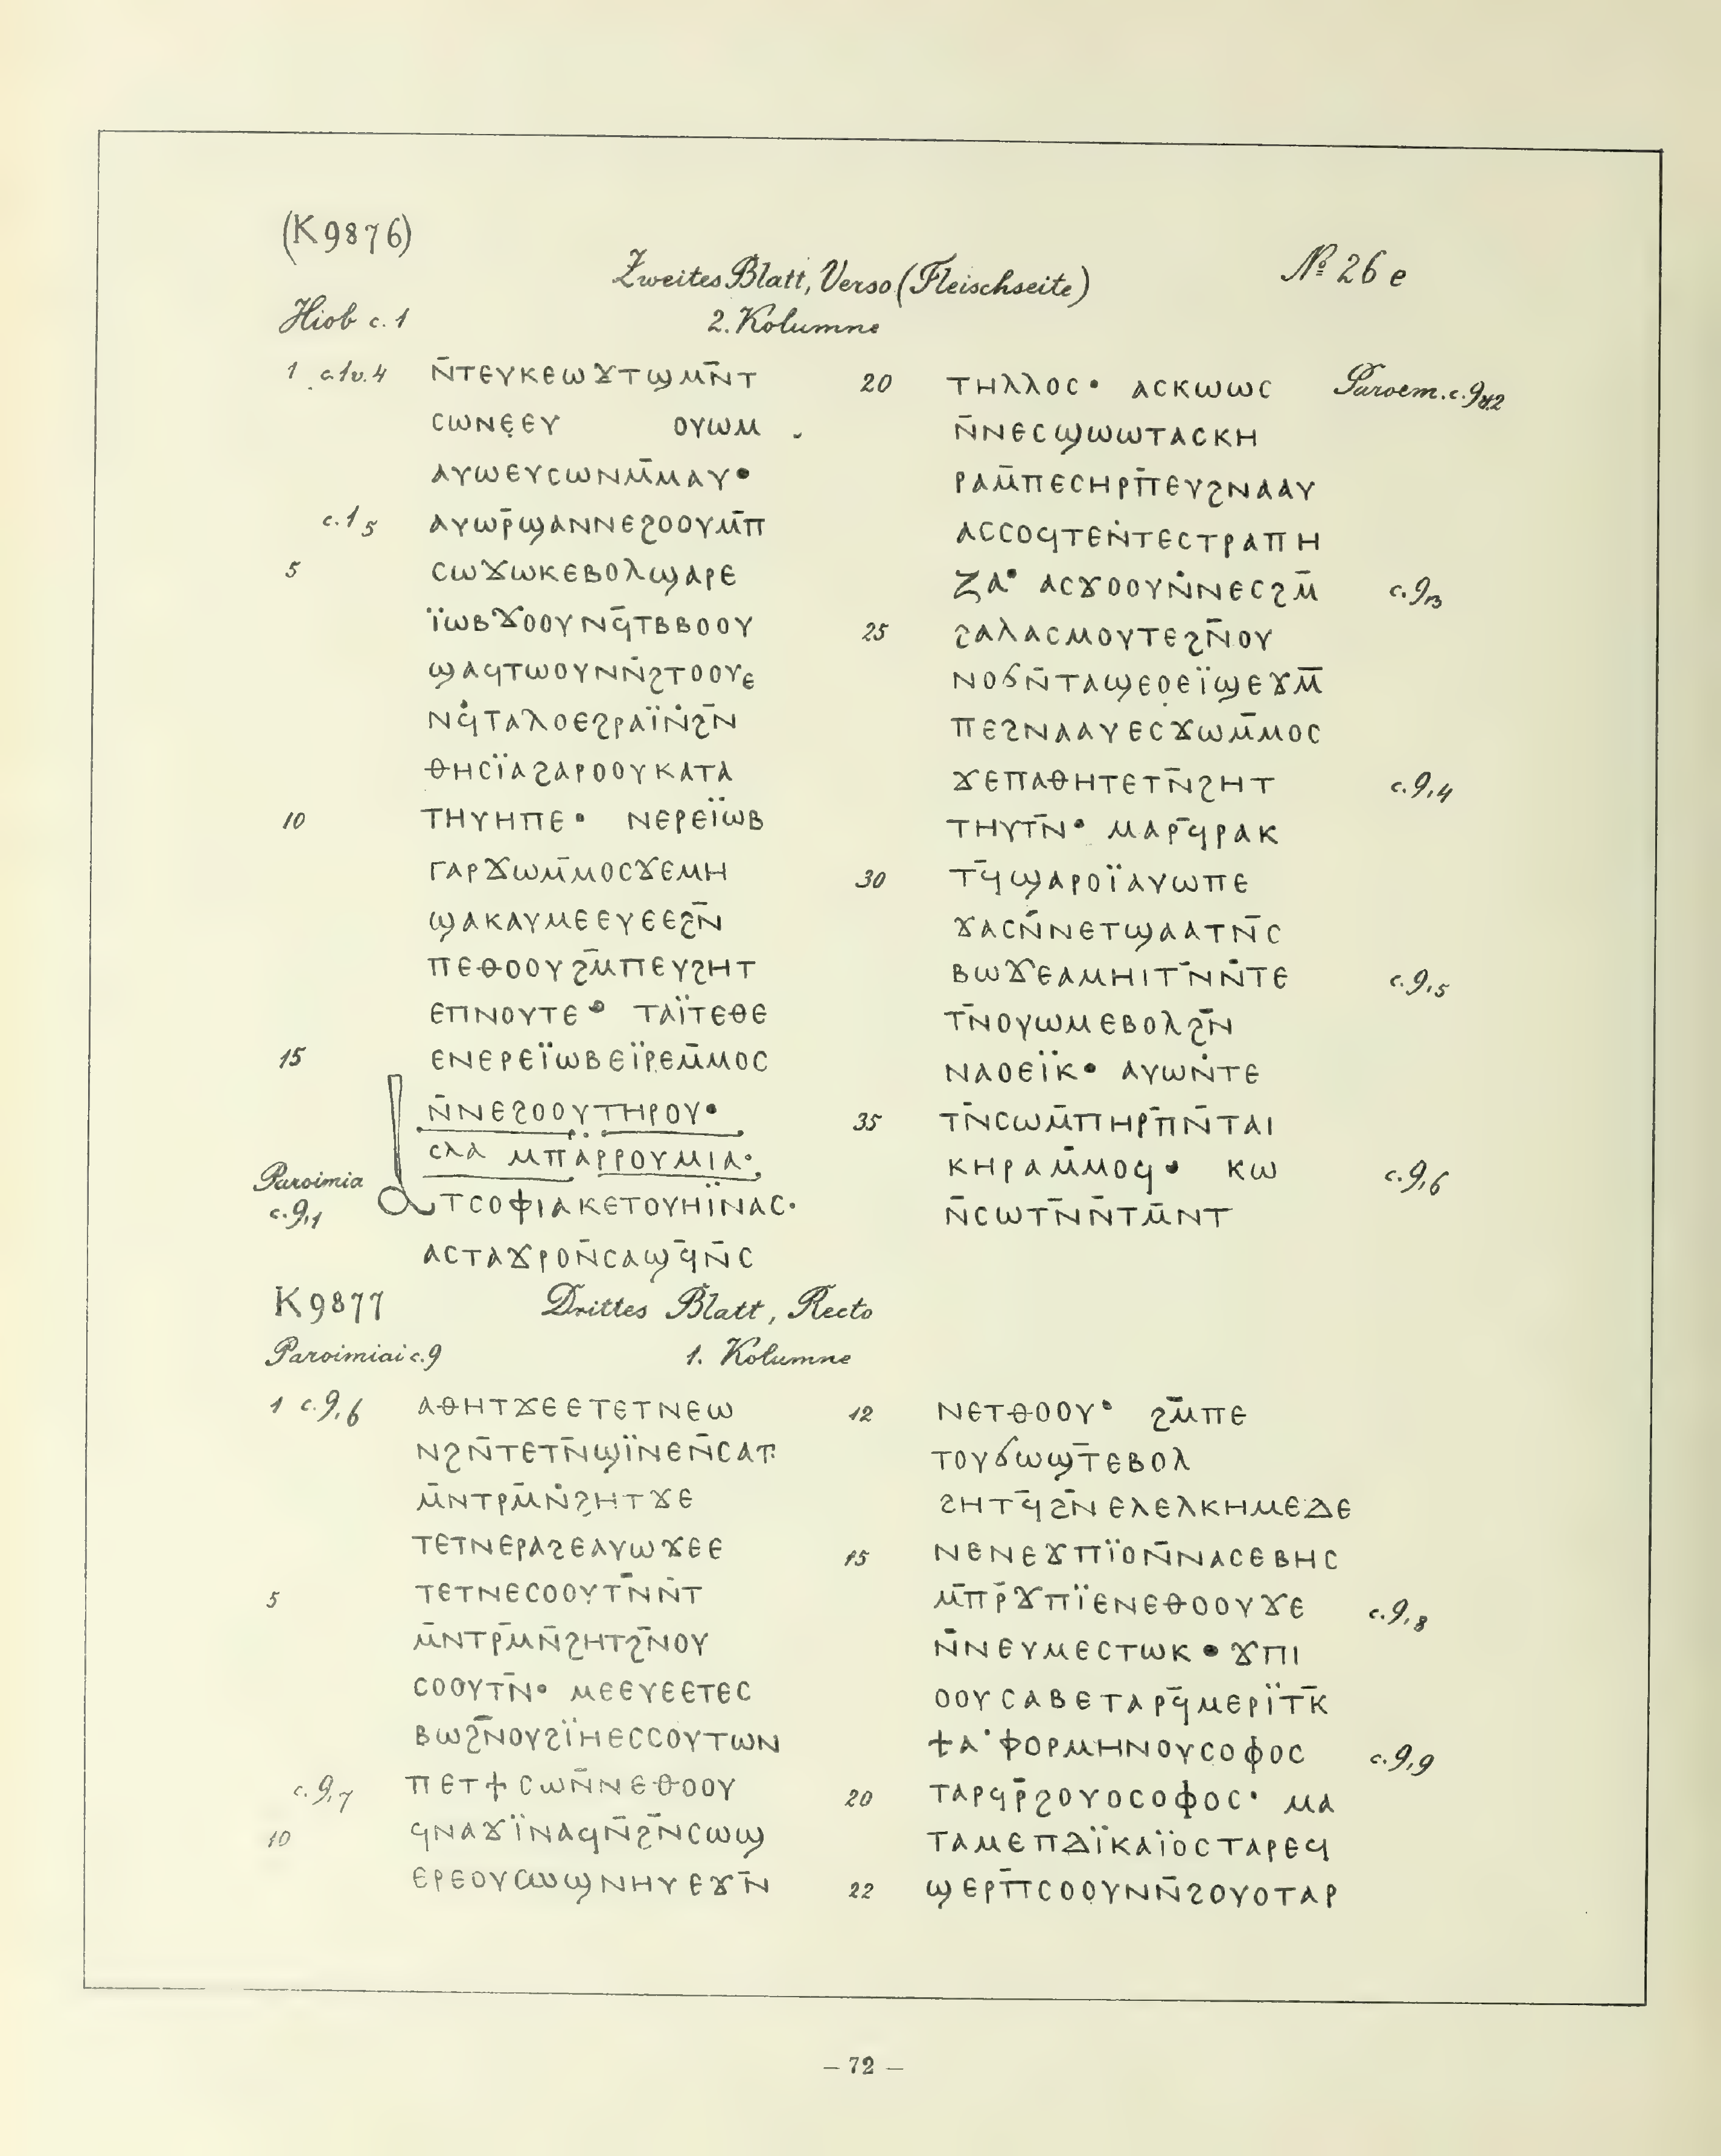 (K9876)
Zweites Blatt, Verso (Fleischseite)
№ 26 e
Hiob c. 1
2. Kolumne
1 c.1v.4 ⲛ̄ⲧⲉⲩⲕⲉⲱϫⲧϣⲙⲛ̄ⲧ
ⲥⲱⲛⲉ̣ⲉⲩ ⲟⲩⲱⲙ
ⲁⲩⲱⲉⲩⲥⲱⲛⲙ̄ⲙⲁⲩ•
c.1 5 ⲁⲩⲱⲣ̄ϣⲁⲛⲛⲉϩⲟⲟⲩⲙ̄ⲡ
5 ⲥⲱϫⲱⲕⲉⲃⲟⲗϣⲁⲣⲉ
ⲓ̈ⲱⲃϫⲟⲟⲩⲛϥ̄ⲧⲃⲃⲟⲟⲩ
ϣⲁϥⲧⲱⲟⲩⲛⲛ̄ϩⲧⲟⲟⲩⲉ
ⲛϥ̇ⲧⲁⲗⲟⲉϩⲣⲁⲓ̈ⲛ̇ϩⲛ̄
ⲑⲏⲥⲓ̈ⲁϩⲁⲣⲟⲟⲩⲕⲁⲧⲁ
10 ⲧⲏⲩⲏⲡⲉ• ⲛⲉⲣⲉⲓ̈ⲱⲃ
ⲅⲁⲣϫⲱⲙ̄ⲙⲟⲥϫⲉⲙⲏ
ϣⲁⲕⲁⲩⲙⲉⲉⲩⲉⲉϩⲛ̄
ⲡⲉⲑⲟⲟⲩϩⲙ̄ⲡⲉⲩϩⲏⲧ
ⲉⲡⲛⲟⲩⲧⲉ• ⲧⲁⲓ̈ⲧⲉⲑⲉ
15 ⲉⲛⲉⲣⲉⲓ̈ⲱⲃⲉⲓ̈ⲣⲉⲙ̄ⲙⲟⲥ
ⲛ̄ⲛⲉϩⲟⲟⲩⲧⲏⲣⲟⲩ•
ⲥⲗⲁ ⲙⲡⲁⲣⲣⲟⲩⲙⲓⲁ·
Paroimia c.9,1 ⲁⲧⲥⲟⲫⲓⲁⲕⲉⲧⲟⲩⲏⲓ̈ⲛⲁⲥ·
ⲁⲥⲧⲁϫⲣⲟⲛ̄ⲥⲁϣϥ̄ⲛ̄ⲥ
20 ⲧⲏⲗⲗⲟⲥ• ⲁⲥⲕⲱⲱⲥ Paroem. c.9v.2
ⲛ̄ⲛⲉⲥϣⲱⲱⲧⲁⲥⲕⲏ
ⲣⲁⲙ̄ⲡⲉⲥⲏⲣⲡ̄ⲉⲩϩⲛⲁⲁⲩ
ⲁⲥⲥⲟϥⲧⲉⲛ̇ⲧⲉⲥⲧⲣⲁⲡⲏ
ⲍⲁ• ⲁⲥϫⲟⲟⲩⲛ̇ⲛⲉⲥϩⲙ̄ c.9,3
25 ϩⲁⲗⲁⲥⲙⲟⲩⲧⲉϩⲛ̄ⲟⲩ
ⲛⲟϭⲛ̄ⲧⲁϣⲉⲟⲉⲓ̈ϣⲉϫⲙ̄
ⲡⲉϩⲛⲁⲁⲩⲉⲥϫⲱⲙ̄ⲙⲟⲥ
ϫⲉⲡⲁⲑⲏⲧⲉⲧⲛ̄ϩⲏⲧ c.9,4
ⲧⲏⲩⲧⲛ̄• ⲙⲁⲣϥ̄ⲣⲁⲕ
30 ⲧϥ̄ϣⲁⲣⲟⲓ̈ⲁⲩⲱⲡⲉ
ϫⲁⲥⲛ̄ⲛⲉⲧϣⲁⲁⲧⲛ̄ⲥ
ⲃⲱϫⲉⲁⲙⲏⲓⲧⲛ̄ⲛ̇ⲧⲉ c.9,5
ⲧⲛ̄ⲟⲩⲱⲙⲉⲃⲟⲗϩⲛ̄
ⲛⲁⲟⲉⲓ̈ⲕ• ⲁⲩⲱⲛ̇ⲧⲉ
35 ⲧⲛ̄ⲥⲱⲙ̄ⲡⲏⲣⲡ̄ⲛ̄ⲧⲁⲓ
ⲕⲏⲣⲁⲙ̄ⲙⲟϥ• ⲕⲱ c.9,6
ⲛ̄ⲥⲱⲧⲛ̄ⲛ̄ⲧⲙ̄ⲛⲧ
K9877
Drittes Blatt, Recto
Paroimiai c.9
1. Kolumne
1 c.9,6 ⲁⲑⲏⲧϫⲉⲉⲧⲉⲧⲛⲉⲱ
ⲛϩⲛ̄ⲧⲉⲧⲛ̄ϣⲓ̈ⲛⲉⲛ̄ⲥⲁⲧ
ⲙ̄ⲛⲧⲣⲙ̄ⲛ̇ϩⲏⲧϫⲉ
ⲧⲉⲧⲛⲉⲣⲁϩⲉⲁⲩⲱϫⲉⲉ
5 ⲧⲉⲧⲛⲉⲥⲟⲟⲩⲧⲛ̄ⲛ̇ⲧ
ⲙ̄ⲛⲧⲣ̄ⲙⲛ̄ϩⲏⲧϩⲛ̄ⲟⲩ
ⲥⲟⲟⲩⲧⲛ̄• ⲙⲉⲉⲩⲉⲉⲧⲉⲥ
ⲃⲱϩⲛ̄ⲟⲩϩⲓ̈ⲏⲉⲥⲥⲟⲩⲧⲱⲛ
c.9,7 ⲡⲉⲧϯⲥⲱⲛ̄ⲛⲉⲑⲟⲟⲩ
10 ϥⲛⲁϫⲓ̈ⲛⲁϥⲛ̄ϩⲛ̄ⲥⲱϣ
ⲉⲣⲉⲟⲩⲥⲱϣⲛⲏⲩⲉϫⲛ̄
12 ⲛⲉⲧⲑⲟⲟⲩ• ϩⲙ̄ⲡⲉ
ⲧⲟⲩϭⲱϣⲧ̄ⲉⲃⲟⲗ
ϩⲏⲧϥ̄ϩⲛ̄ⲉⲗⲉⲗⲕⲏⲙⲉⲇⲉ
15 ⲛⲉⲛⲉϫⲡⲓ̈ⲟⲛ̄ⲛⲁⲥⲉⲃⲏⲥ
ⲙ̄ⲡⲣ̄ϫⲡⲓ̈ⲉⲛⲉⲑⲟⲟⲩϫⲉ c.9,8
ⲛ̄ⲛⲉⲩⲙⲉⲥⲧⲱⲕ• ϫⲡⲓ
ⲟⲟⲩⲥⲁⲃⲉⲧⲁⲣϥ̄ⲙⲉⲣⲓ̈ⲧⲕ̄
ϯⲁ·ⲫⲟⲣⲙⲏⲛⲟⲩⲥⲟⲫⲟⲥ c.9,9
20 ⲧⲁⲣϥⲣ̄ϩⲟⲩⲟⲥⲟⲫⲟⲥ• ⲙⲁ
ⲧⲁⲙⲉⲡⲇⲓ̈ⲕⲁⲓ̈ⲟⲥⲧⲁⲣⲉϥ
22 ϣⲉⲣⲡ̄ⲥⲟⲟⲩⲛⲛ̄ϩⲟⲩⲟⲧⲁⲣ
– 72 –